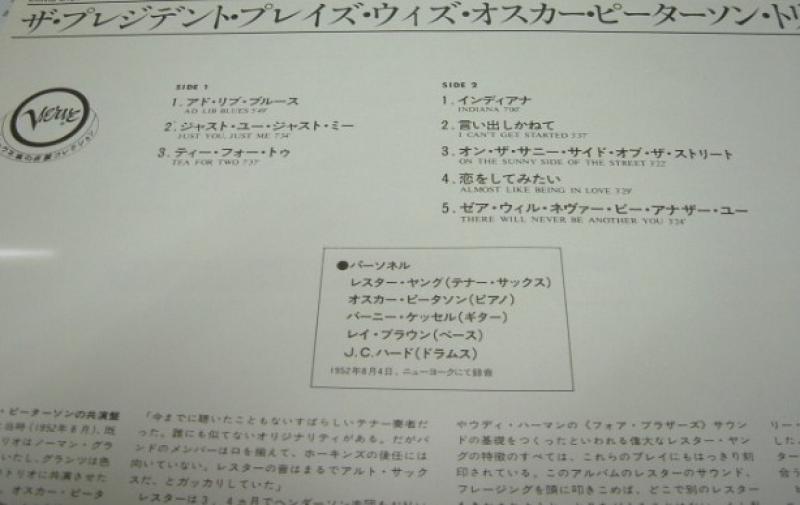 ザ・プレジデント・プレイズ・ウィズ・オスカー・ピーターソン・トリ
Verve
SIDE 1
1. アド・リブ・ブルース
AD LIB BLUES 5'49"
2. ジャスト・ユー・ジャスト・ミー
JUST YOU, JUST ME 7'34"
3. ティー・フォー・トゥ
TEA FOR TWO 7'37"
SIDE 2
1. インディアナ
INDIANA 7'00"
2. 言い出しかねて
I CAN'T GET STARTED 3'37"
3. オン・ザ・サニー・サイド・オブ・ザ・ストリート
ON THE SUNNY SIDE OF THE STREET 3'22"
4. 恋をしてみたい
ALMOST LIKE BEING IN LOVE 3'29"
5. ゼア・ウィル・ネヴァー・ビー・アナザー・ユー
THERE WILL NEVER BE ANOTHER YOU 3'24"
●パーソネル
レスター・ヤング(テナー・サックス)
オスカー・ピータソン(ピアノ)
バーニー・ケッセル(ギター)
レイ・ブラウン(ベース)
J.C.ハード(ドラムス)
1952年8月4日、ニューヨークにて録音
・ピーターソンの共演盤
当時(1952年8月)、既
リオはノーマン・グラ
いたし、グランツは色
トリオに共演させた
。オスカー・ピータ
「今までに聴いたこともないすばらしいテナー奏者だ
った。誰にも似てないオリジナリティがある。だがバ
ンドのメンバーは口を揃えて、ホーキンズの後任には
向いていない。レスターの音はまるでアルト・サック
スだ、とガッカリしていた」
レスターは3、4ヵ月でヘンダーソン
やウディ・ハーマンの《フォア・ブラザーズ》サウン
ドの基礎をつくったといわれる偉大なレスター・ヤン
グの特徴のすべては、これらのプレイにもはっきり刻
印されている。このアルバムのレスターのサウンド、
フレージングを頭に叩きこめば、どこで別のレスター
リー・
した。
ター
合う